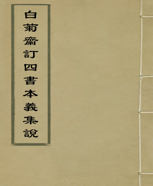 白菊齋訂四書本義集說